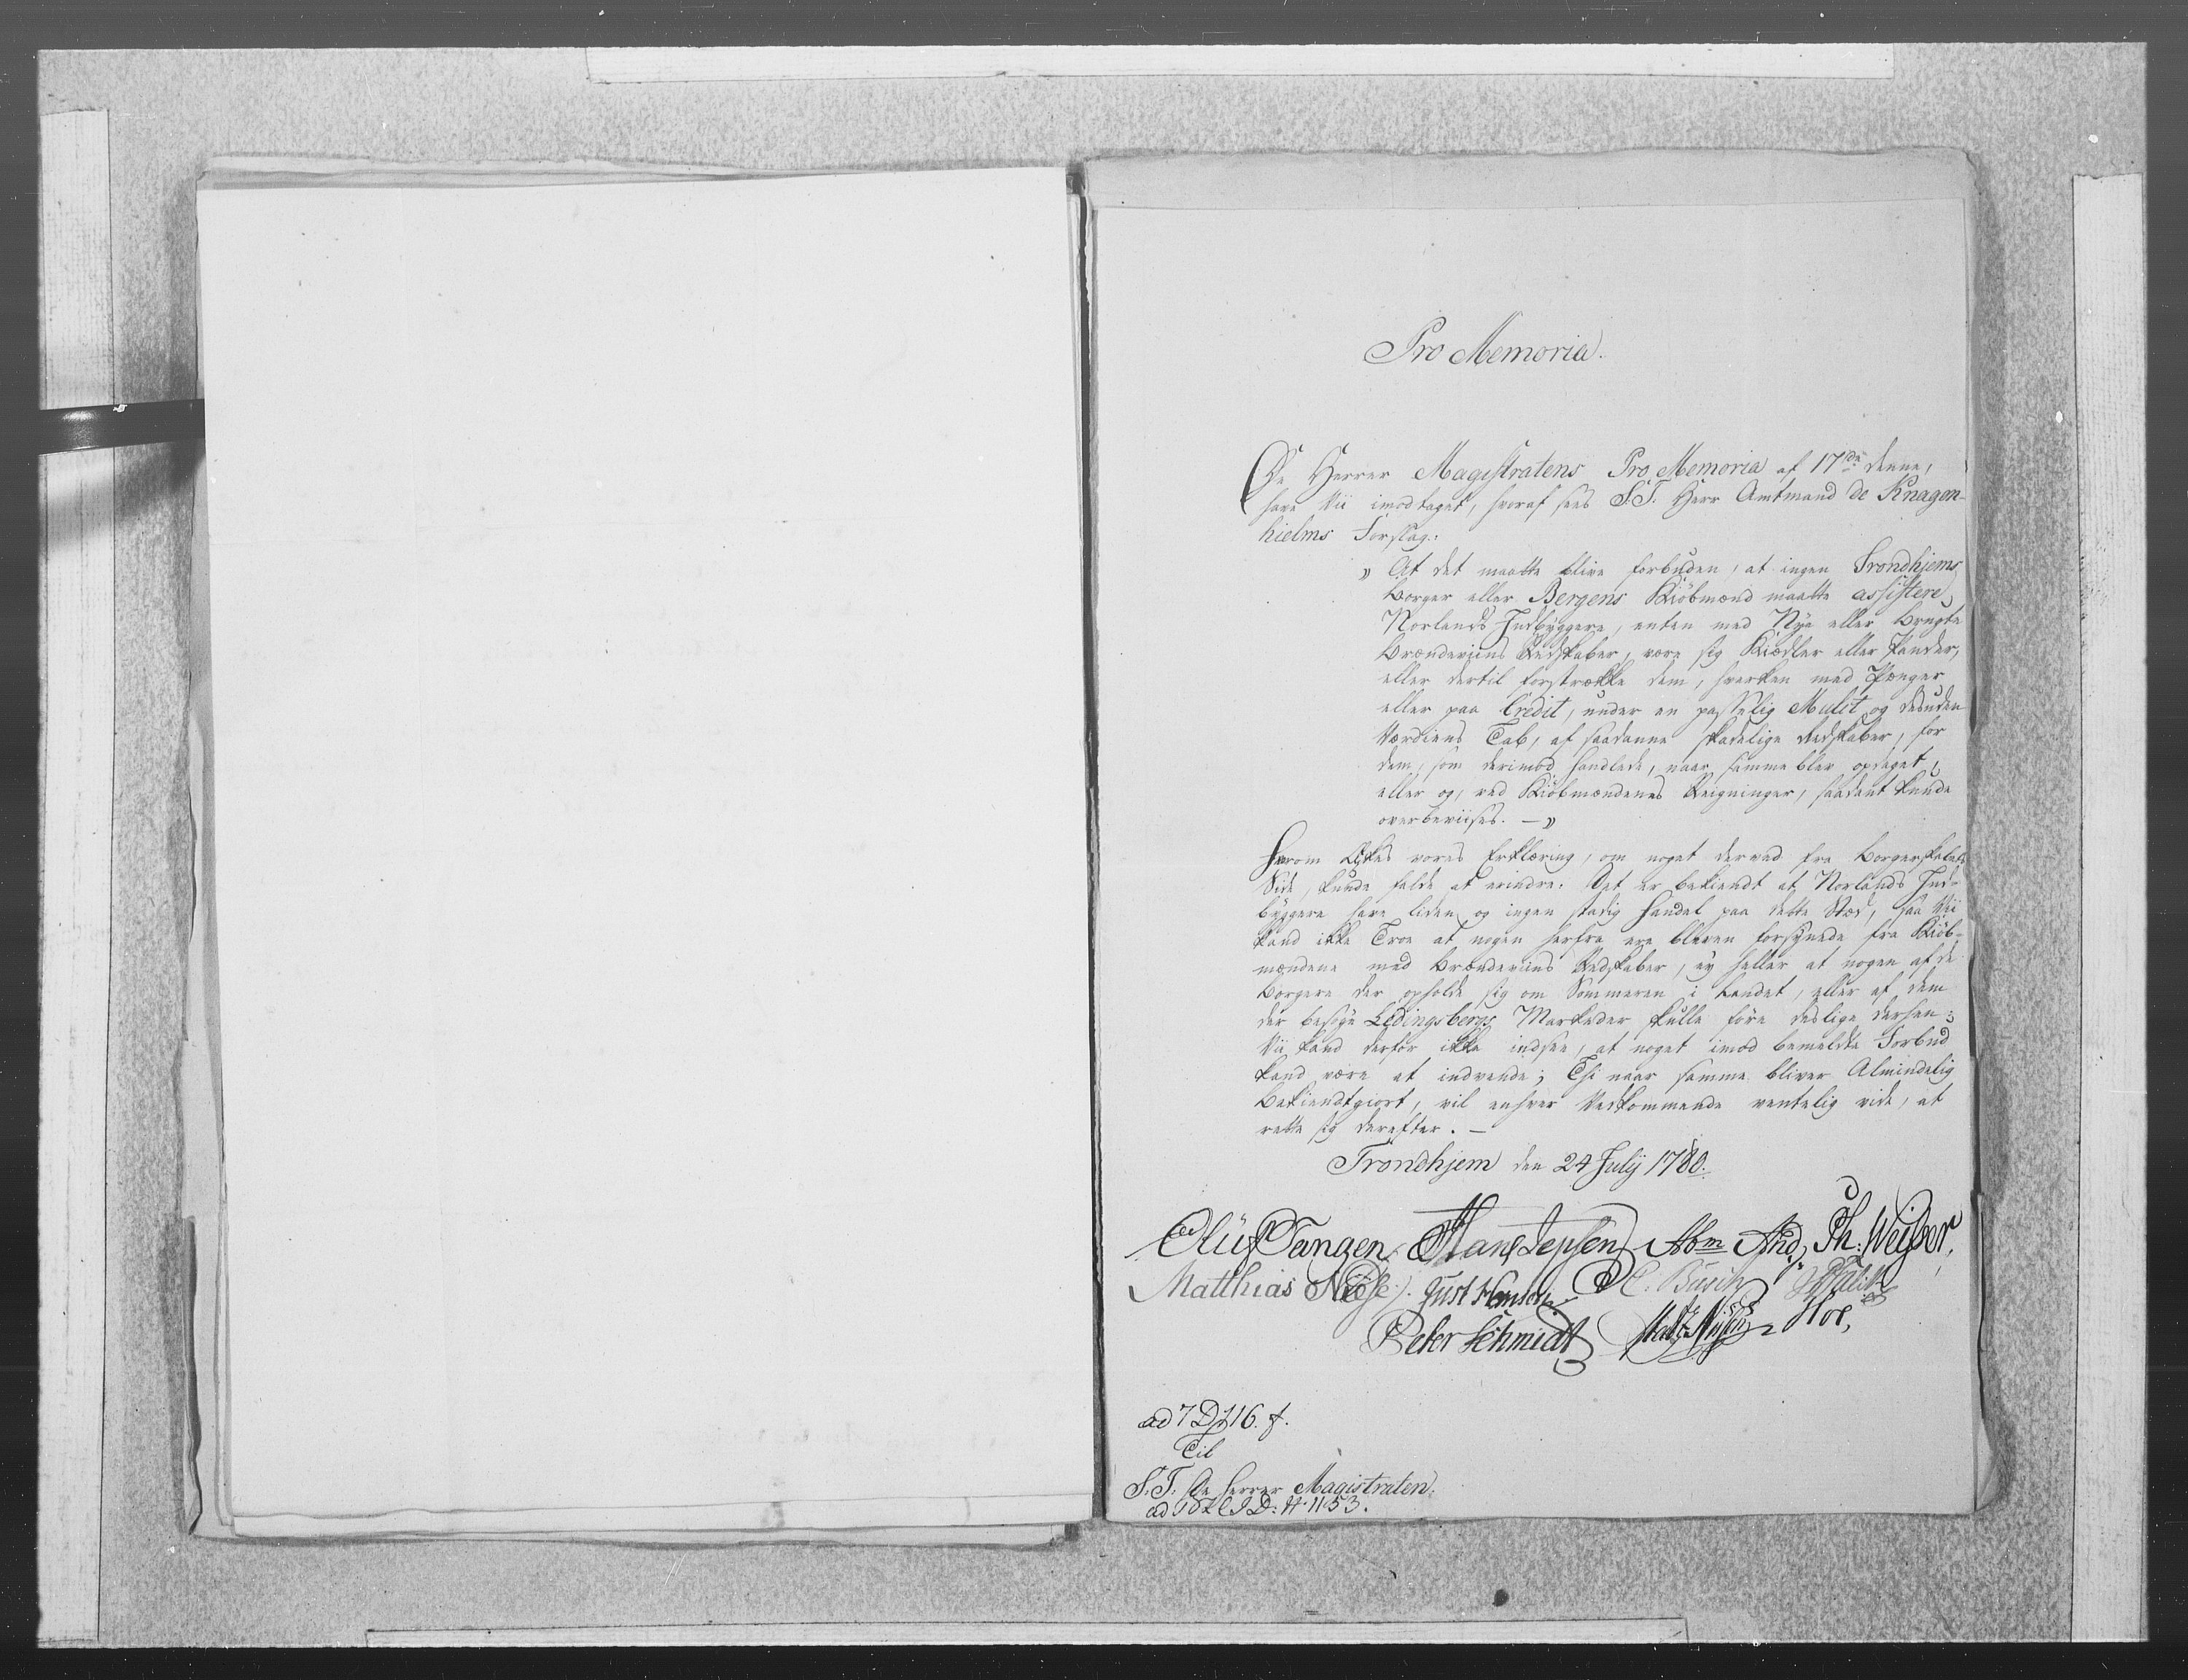 Pro Memoria.
De Herrer Magistratens Pro Memoria af 17de denne,
have Vii imodtaget, hvoraf sees S.T. Herr Amtmand de Knagen-
hielms Forslag:
" At det maatte blive forbuden, at ingen Trondhjems
Borger eller Bergens Kiöbmænd maatte assistere
Norlands Indbyggere, enten med Nye eller Brugte
Brændeviins Redskaber, være sig Kiedler eller Pander,
eller dertil forstrække dem, hverken med Penger
eller paa Credit, under en passelig Mulct og desuden
Værdiens Tab, af saadanne skadelige Redskaber, for
dem, som derimod handlede, naar samme blev opdaget,
eller og, ved Kiöbmændenes Reigninger, saadant kunde
overbeviises. — "
Herom Æskes vores Erklæring, om noget derved fra Borgerskabets
Side, kunde falde at erindre. Det er bekiendt at Norlands Ind-
byggere have liden og ingen stadig Handel paa dette Stæd, saa Vii
kand ikke Troe at nogen herfra ere bleven forsynede fra Kiöb-
mændene med Brændeviins Redskaber, ey heller at nogen af de
Borgere der opholde sig om Sommeren i Landet, eller af dem
der besöge Ledingsbergs Markeder skulle före deslige derhen;
Vii kand derfor ikke indsee, at noget imod bemeldte Forbud
kand være at indvende; Thi naar samme bliver Almindelig
Bekiendtgiort, vil enhver Vedkommende ventelig vide, at
rette sig derefter. —
Trondhjem den 24 Julij 1780.
Oluf Tangen Hans Jepsen Abm And, Th: Weÿbær,
Matthias Just Hansen C. Busch
Peter Schmidt Hoe,
ad 7 D 116. f.
Til
S.T. De Herrer Magistraten.
ad D: N 1153.